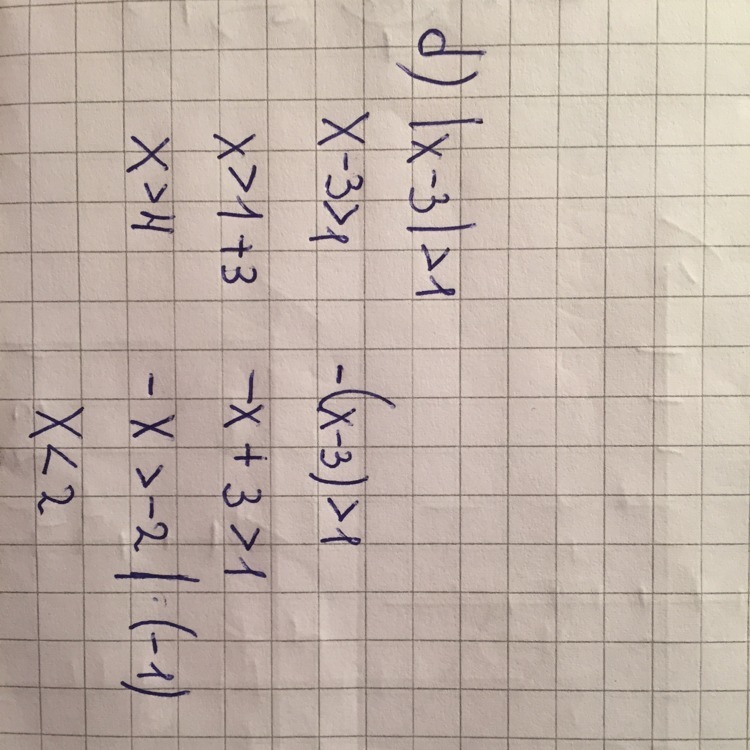 d) |x-3|>1
x-3>1
x>1+3
x>4
-(x-3)>1
-x+3>1
-x>-2 |·(-1)
x<2